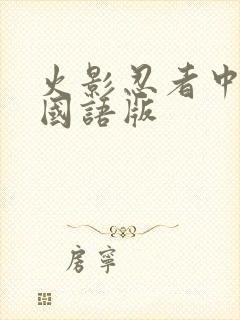 火影忍者中
國語版
房寧